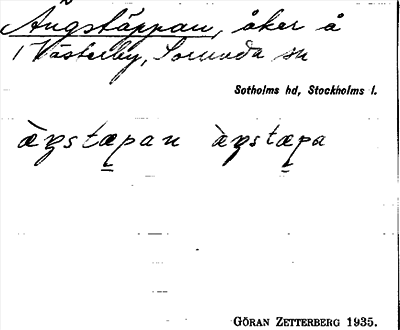 Ängstäppan, åker å
1 Västerby, Sorunda sn
Sotholms hd, Stockholms l.
GÖRAN ZETTERBERG 1935.